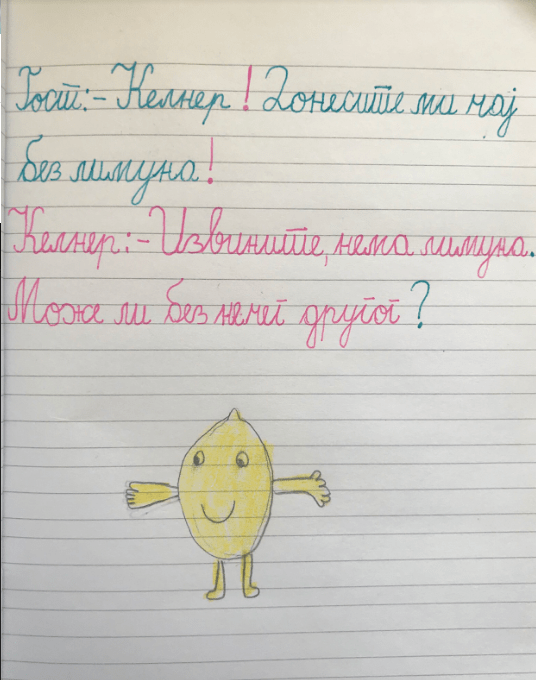 Гост:- Келнер! Донесите ми чај
без лимуна!
Келнер:- Извините, нема лимуна.
Може ли без нечег другог?